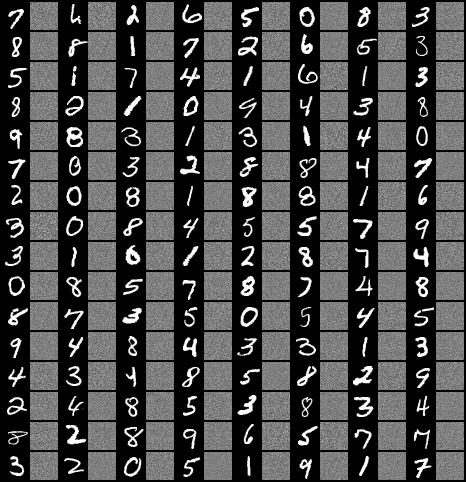 7 6 2 6 5 0 8 3
8 8 1 7 2 6 5 3
5 1 7 4 1 6 1 3
8 2 1 0 9 4 3 8
9 8 3 1 3 1 4 0
7 0 3 2 8 8 4 7
2 0 8 1 8 8 1 6
3 0 8 4 5 5 7 9
3 1 0 1 2 8 7 4
0 8 5 7 8 7 4 8
8 7 3 5 0 5 4 5
9 4 8 4 3 3 1 3
4 3 4 8 5 8 2 9
2 4 8 5 3 8 3 4
8 2 8 9 6 5 7 7
3 2 0 5 1 9 1 7